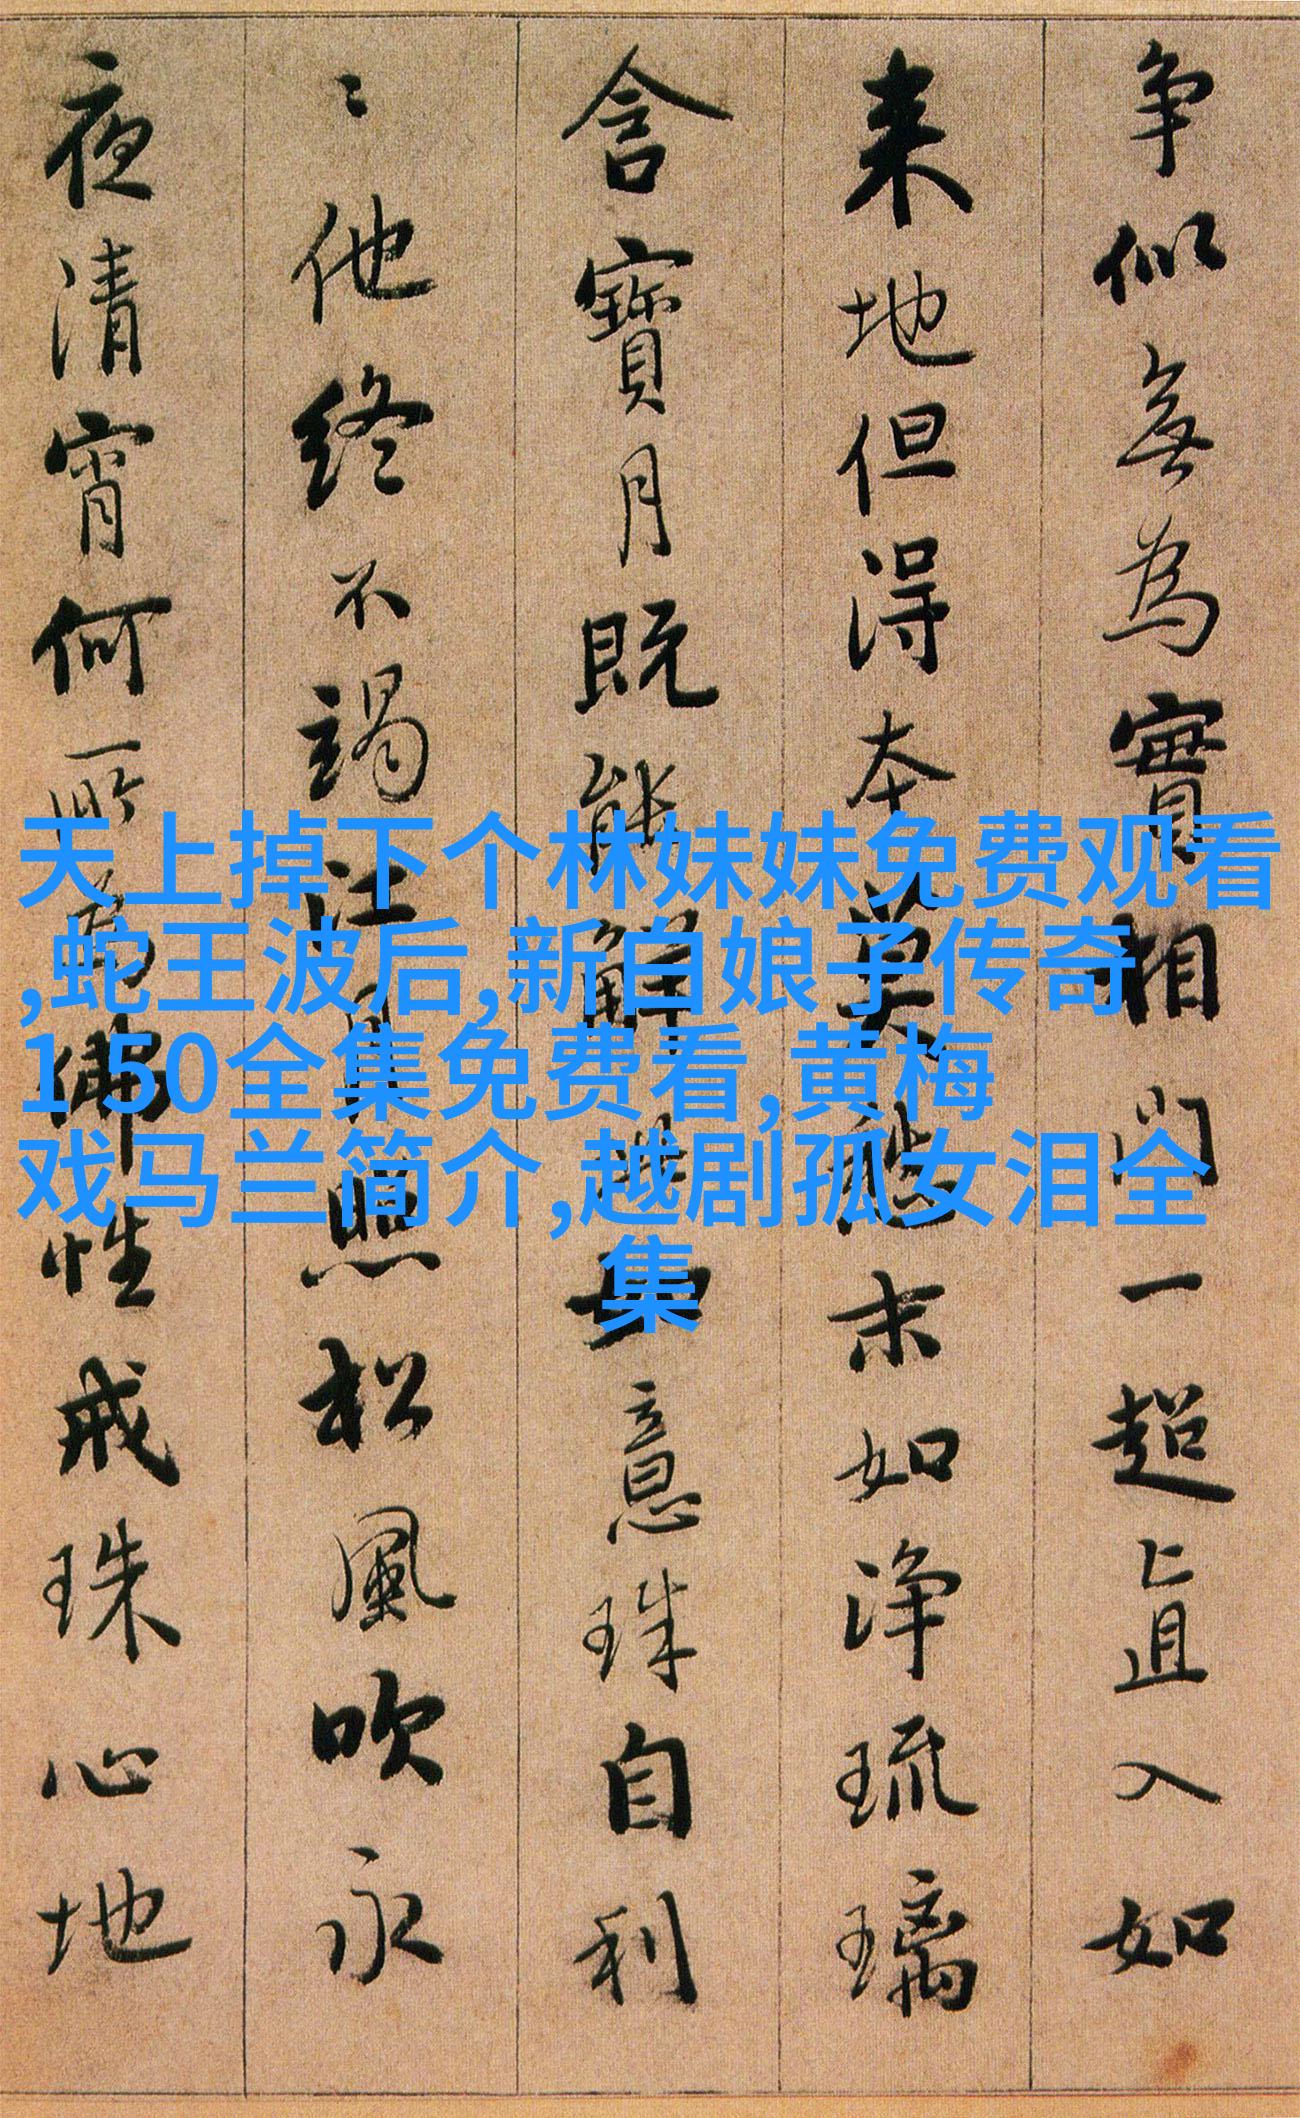 争似無為實相門一超直入如
来地但得本莫愁末如淨琉璃
含寶月既能解此如意珠自利
〻他終不竭江月照松風吹永
夜清宵何所為佛性戒珠心地
天上掉下个林妹妹免费观看
,蛇王波后,新白娘子传奇
1 50全集免费看,黄梅
戏马兰简介,越剧孤女泪全
集